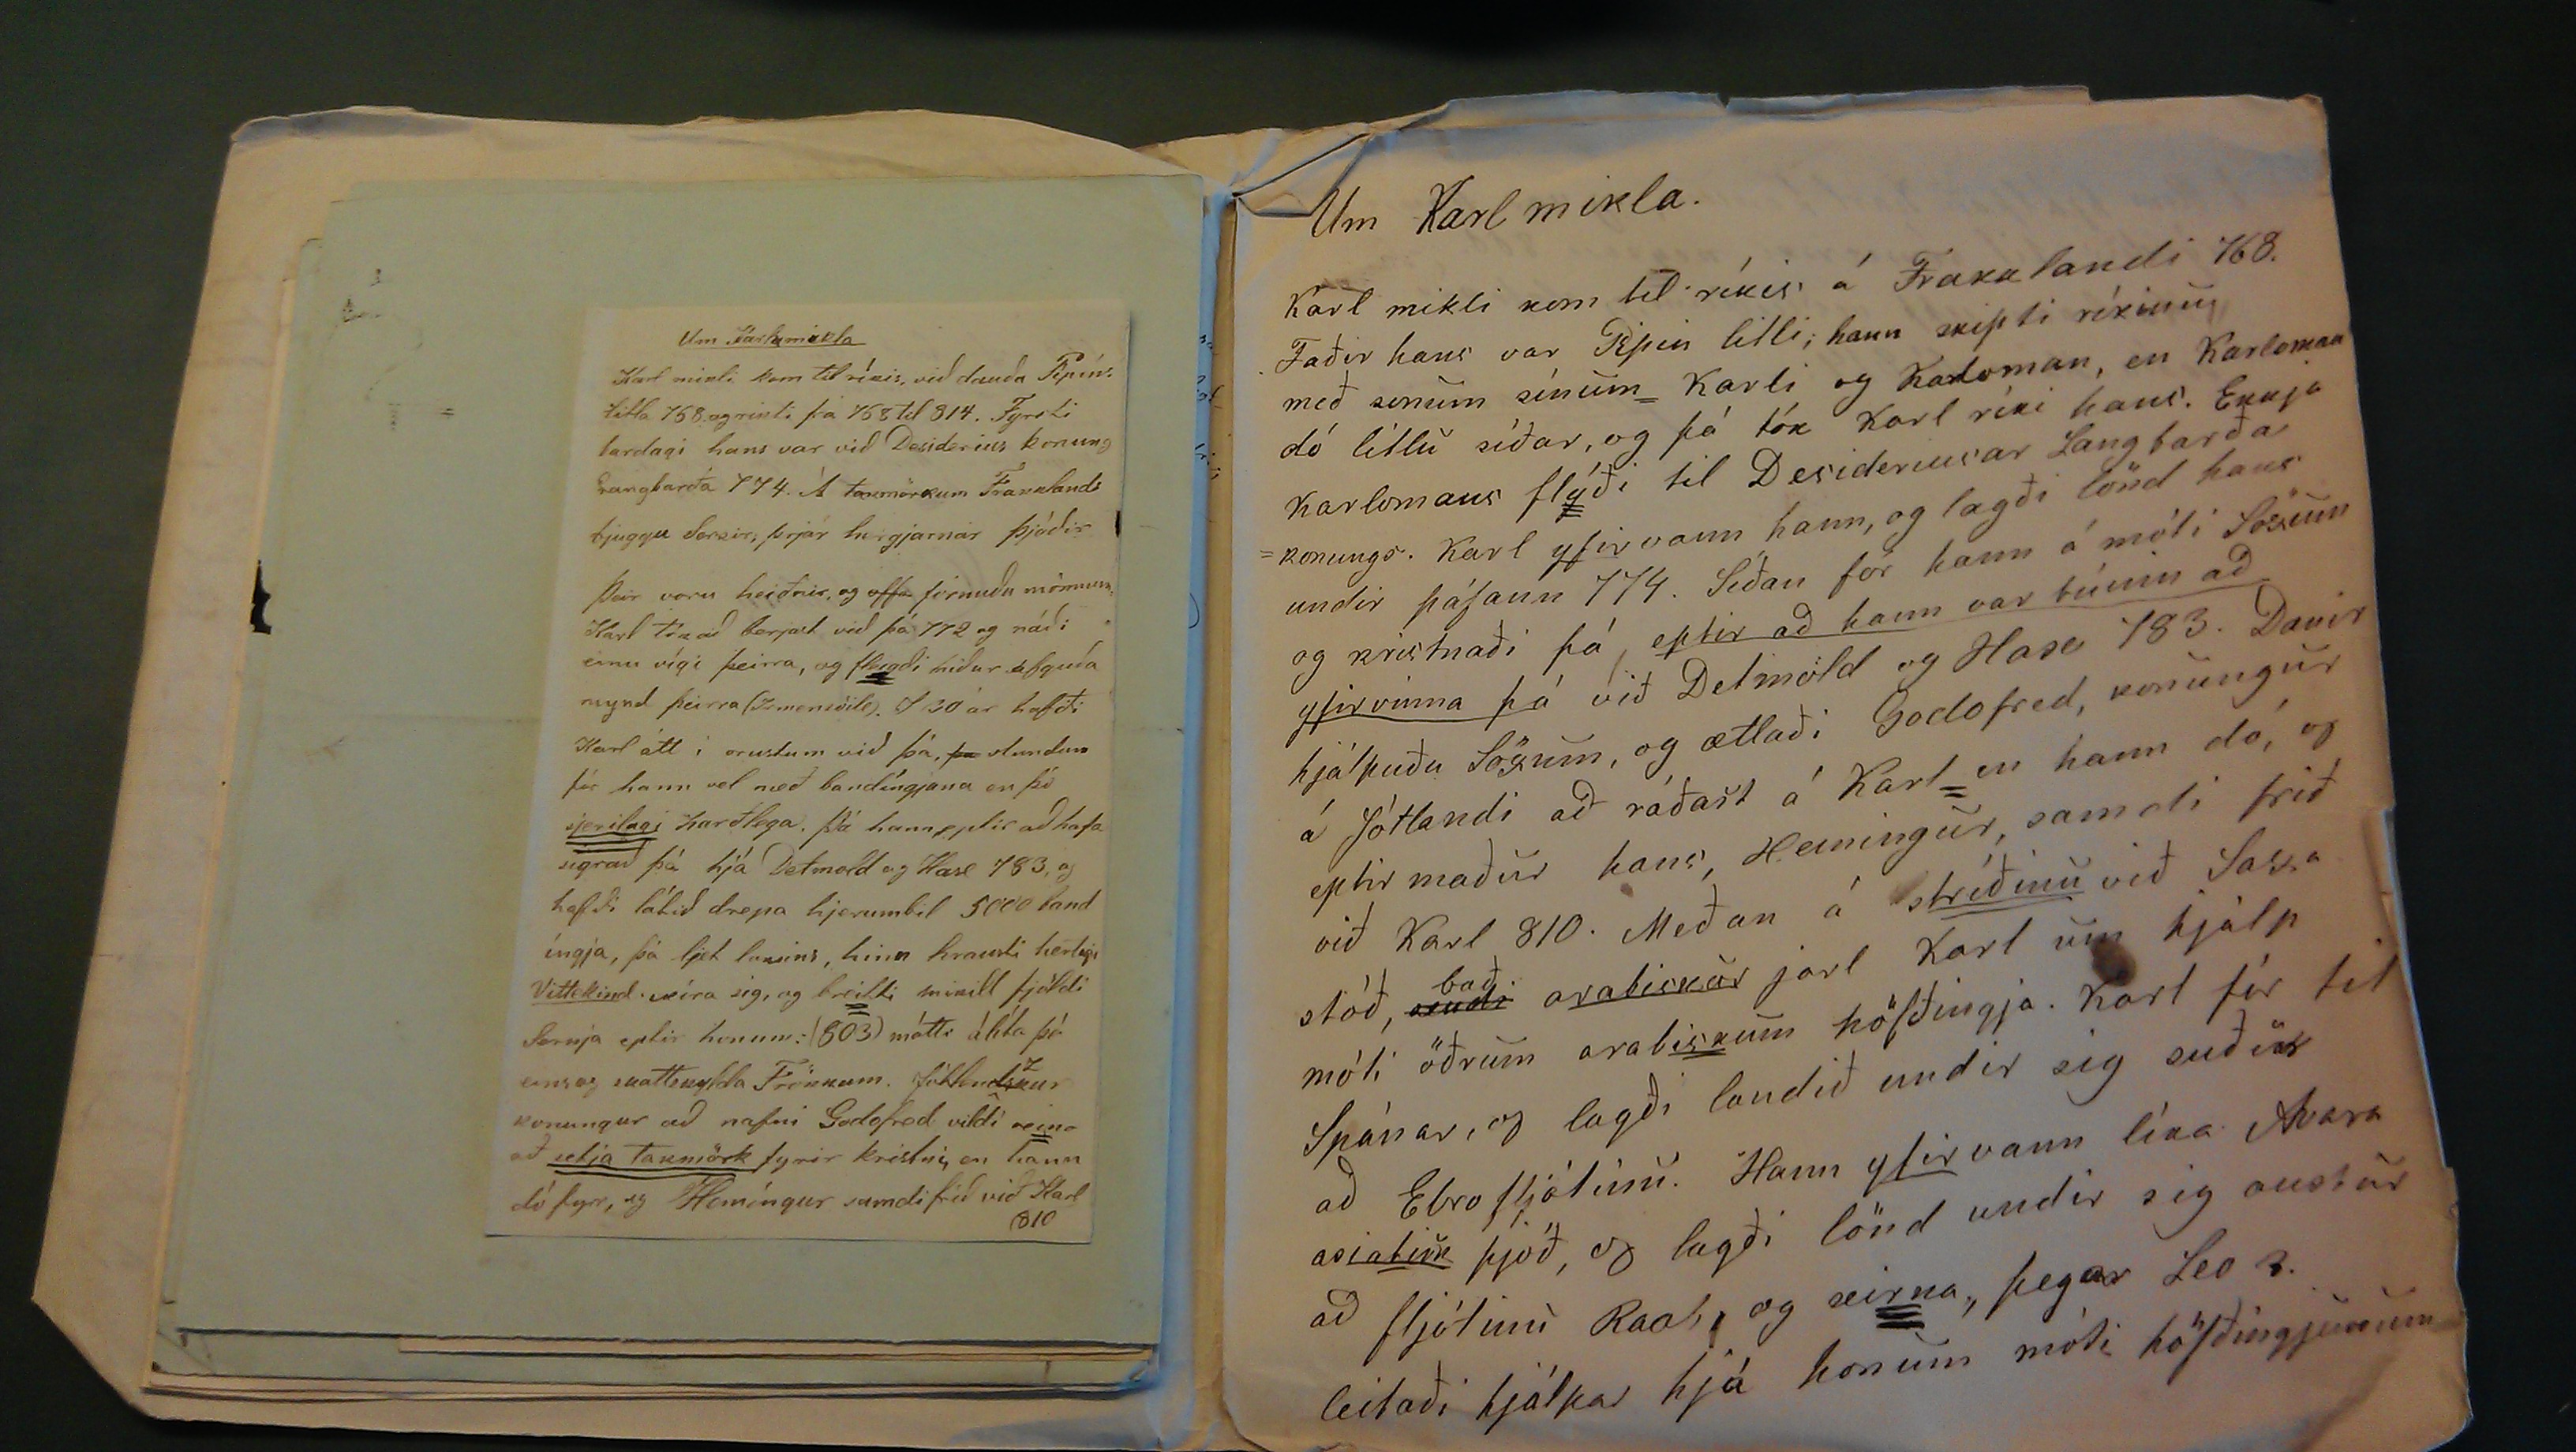 Um Karlamikla
Karl mikli kom til ríkis, við dauða Pipíns
litla 768, og ríkti frá 768 til 814. Fyrsti
bardagi hans var við Desiderius konung
Langbarða 774. Á taxmörkum Frakklands
bjuggu Saxar, þrjár hergjarnar þjóðir
Þeir voru heiðnir, og offr fórnuðu mönnum.
Karl tók að berjast við þá 772 og náði
einu vígi þeirra, og fleygði niður afguða
mynd þeirra (Irmensöile). Í 30 ár hafði
Karl átt í orustum við þá, stundum
fór hann vel með bandíngjana en þó
sjerílagi harðlega. Þá hann eptir að hafa
sigrað þá hjá Detmold og Hase 783, og
hafði látið drepa hjerumbil 5000 band
íngja, þá ljet loksins, hinn hrausti hertogi
Vittekind skíra sig, og breitti mikill fjöldi
Saxnja eptir honum: (803) mátti álíta þá
eins og skattskylda Frökkum. Jótlendskur
konungur að nafni Godofred vildi reina
að setja taxmörk fyrir kristni, en hann
dó fyrr, og Hemíngur samdi frið við Karl
810
Um Karl mikla.
Karl mikli kom til ríkis á Frakklandi 768.
Faðir hans var Pipin litli; hann skipti ríkinu
með sonum sínum= Karli og Karloman, en Karloman
dó litlu síðar, og þá tók Karl ríki hans. Ekkja
Karlomans flýði til Desideriusar Langbarða
=konungs. Karl yfirvann hann, og lagði lönd hans
undir páfann 774. Síðan fór hann á móti Söxum
og kristnaði þá, eptir að hann var búinn að
yfirvinna þá við Detmold og Hase 783. Danir
hjálpuðu Söxum, og ætlaði Godofred, konungur
á Jótlandi að ráðast á Karl= en hann dó, og
eptirmaður hans, Hemingur, samdi frið
við Karl 810. Meðan á stríðinu við Saxa
stóð, sendi bað arabiskur jarl Karl um hjálp
móti öðrum arabiskum höfðingja. Karl fór til
Spánar, og lagði landið undir sig suður
að Ebrofljótinu. Hann yfirvann líka Avara
asiatisk þjóð, og lagði lönd undir sig austur
að fljótinu Raab, og þegar Leo 3.
leitaði hjálpar hjá honum móti höfðingjunum